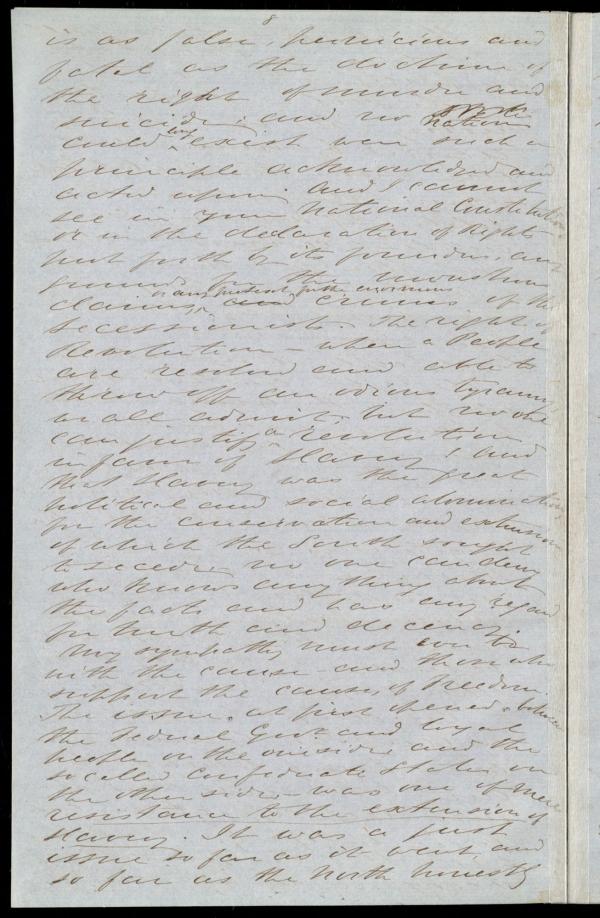 8
is as false, pernicious and
fatal as the doctrine of
the right of murder and
suicide; and no nation
could long exist were such a
principle acknowledged and
acted upon. and I cannot
see in your National Constitution
or in the declaration of Rights
put forth by its founders, any
ground for the monstrous
or any pretext for the enormous
claims, and crimes of the
Secessionists. The right of
Revolution – when a People
are resolved and able to
throw off an odious tyranny,
we all admit, but no one
can justify a revolution
in favor of Slavery! and
that Slavery was the great
political and social abomination
for the conservation and extension
of which the South sought
to secede, no one can deny
who knows any thing about
the facts and has any regard
for truth and decency.
My sympathy must ever be
with the cause and those who
support the cause, of freedom.
The issue, at first opened, between
the Federal Govt. and loyal
people on the one side, and the
so called Confederate States on
the other side – was one of mere
resistance to the extension of
slavery. It was a just
issue so far as it went, and
so far as the North honestly